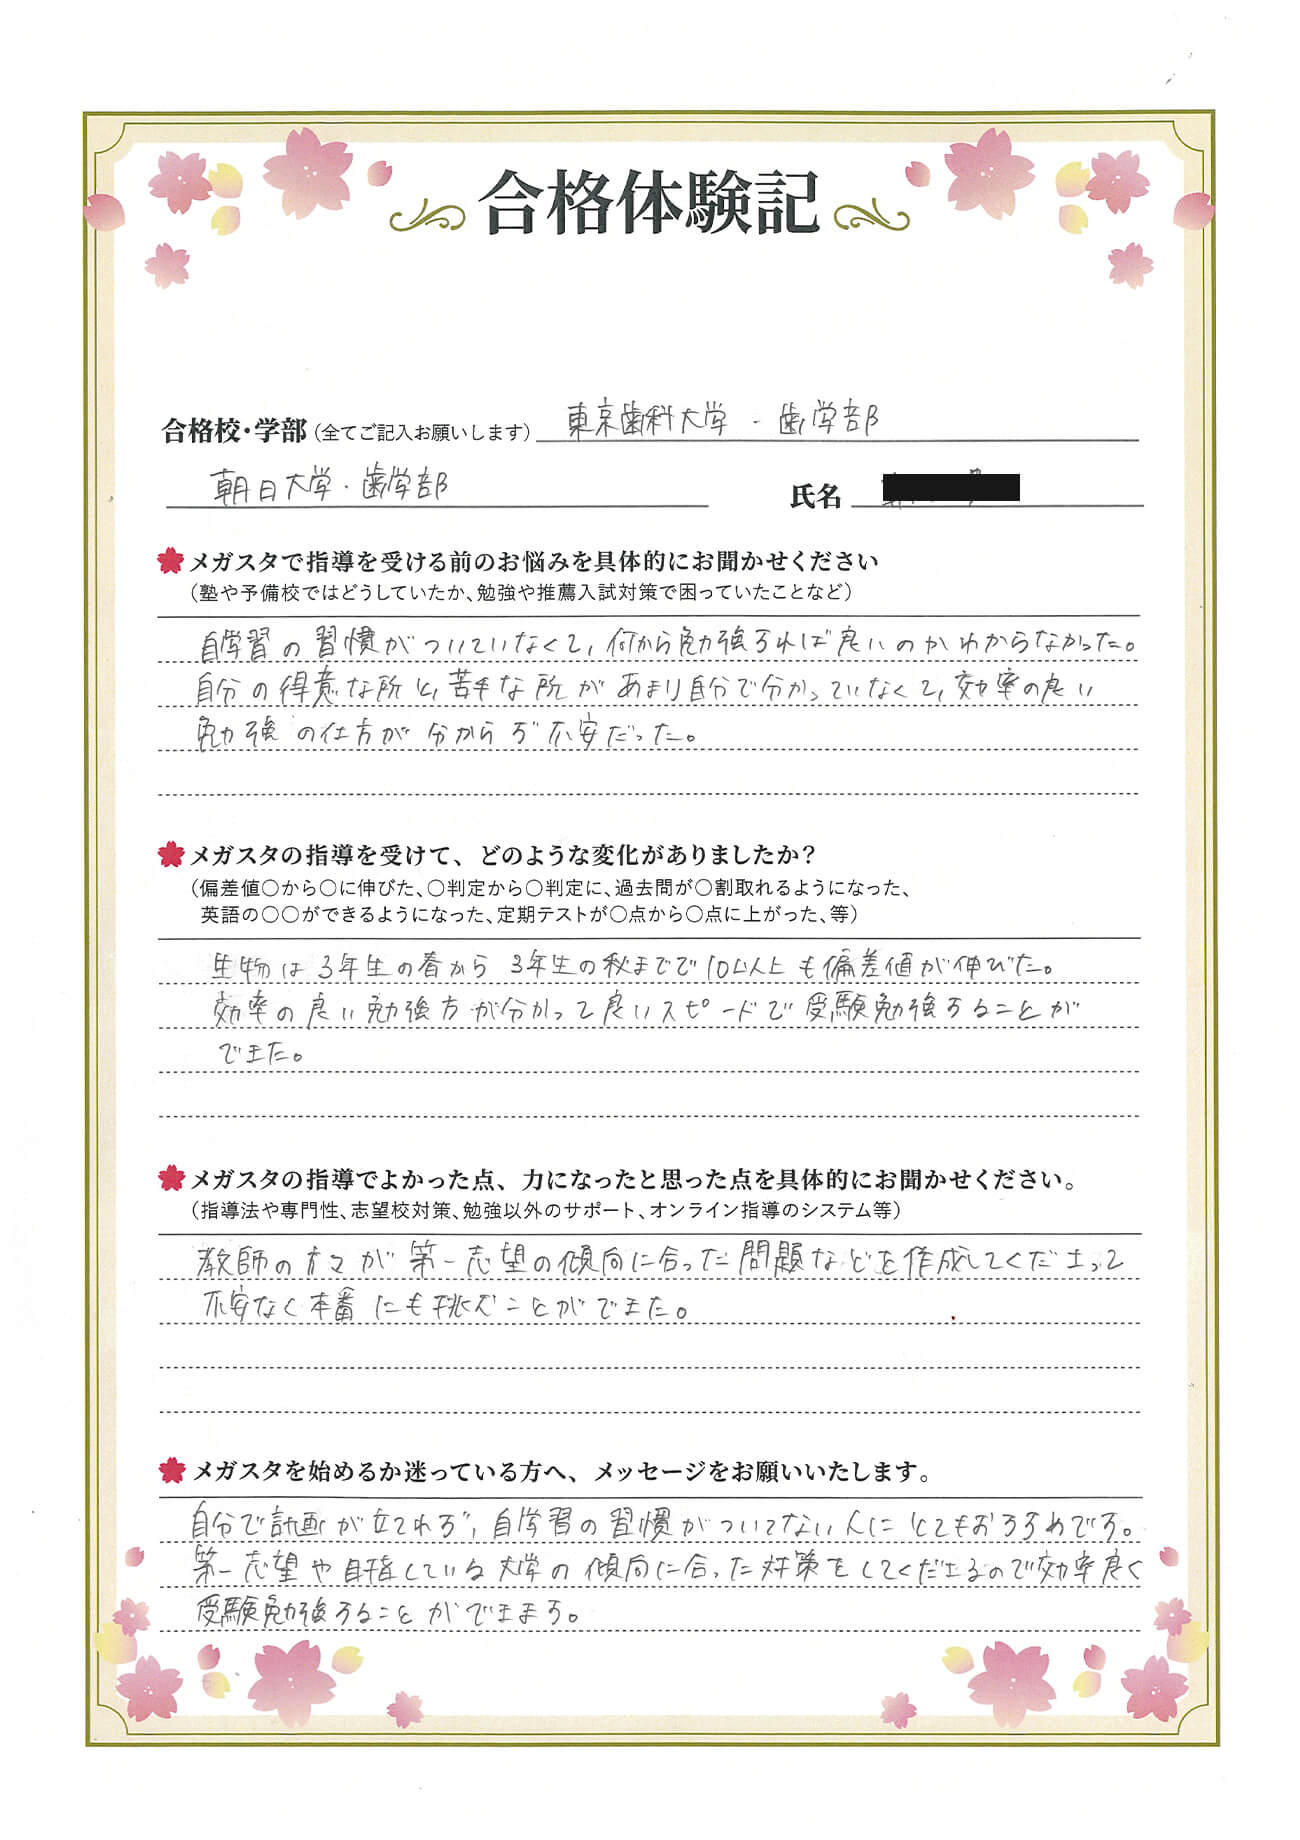 合格体験記
合格校・学部(全てご記入お願いします) 東京歯科大学・歯学部
朝日大学・歯学部 氏名
メガスタで指導を受ける前のお悩みを具体的にお聞かせください
(塾や予備校ではどうしていたか、勉強や推薦入試対策で困っていたことなど)
自学習の習慣がついていなくて、何から勉強すれば良いのかわからなかった。
自分の得意な所と、苦手な所があまり自分で分かっていなくて、効率の良い
勉強の仕方が分からず不安だった。
メガスタの指導を受けて、どのような変化がありましたか?
(偏差値○から○に伸びた、○判定から○判定に、過去問が○割取れるようになった、
英語の○○ができるようになった、定期テストが○点から○点に上がった、等)
生物は3年生の春から3年生の秋までで10以上も偏差値が伸びた。
効率の良い勉強方が分かって良いスピードで受験勉強することが
できた。
メガスタの指導でよかった点、力になったと思った点を具体的にお聞かせください。
(指導法や専門性、志望校対策、勉強以外のサポート、オンライン指導のシステム等)
教師の方々が第一志望の傾向に合った問題などを作成してくださって
不安なく本番にも挑むことができた。
メガスタを始めるか迷っている方へ、メッセージをお願いいたします。
自分で計画が立てれず、自学習の習慣がついてない人にとてもおすすめです。
第一志望や目指している大学の傾向に合った対策をしてくださるので効率良く
受験勉強することができます。